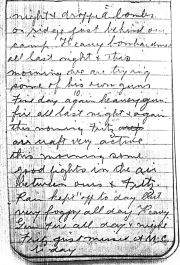 night & dropped bombs
on ridge just behind our
camp. Heavy bombardment
all last night & this
morning we are trying
some of his own guns
10.
Fine day again Heavy gun
fire all last night & again
this morning Fritz
aircraft very active
this morning some
good fights in the air
between ours & Fritz.
Rain kept off to day But
very foggy all day Heavy
Gun Fire all day & night
Fritz
to day